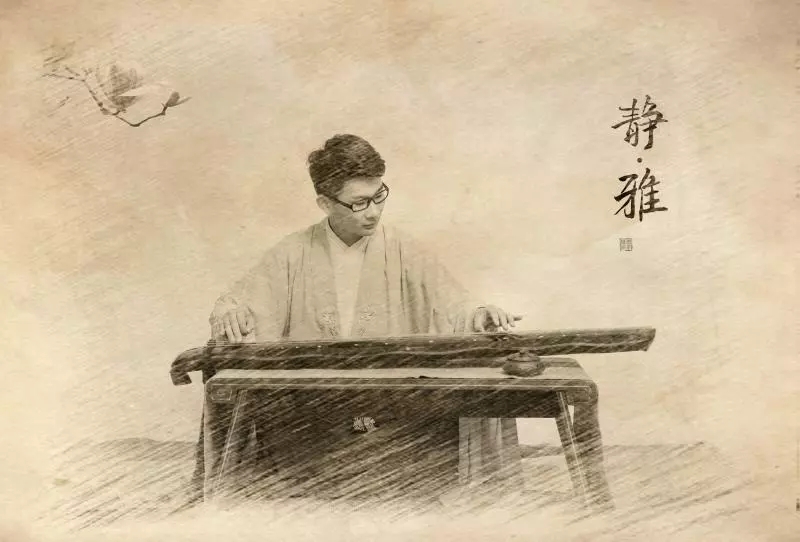 静·雅